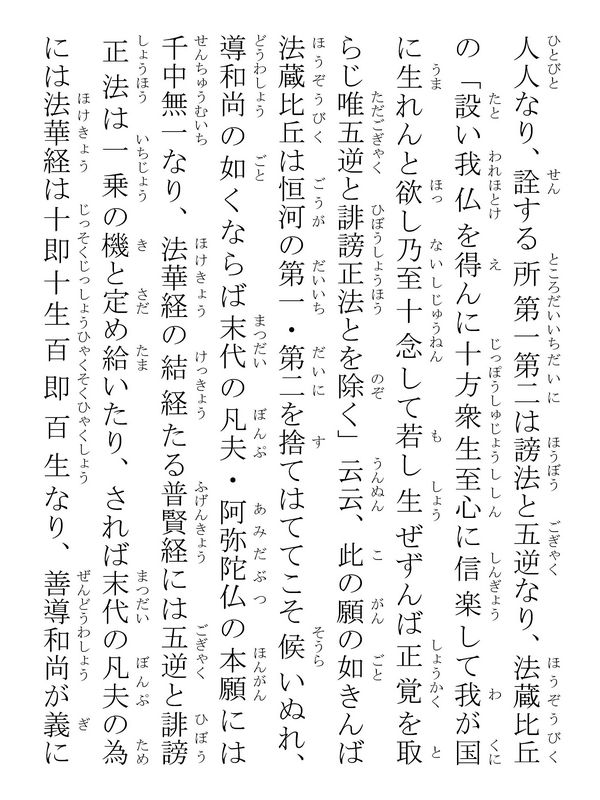 人人なり、詮する所第一第二は謗法と五逆なり、法蔵比丘
の「設い我仏を得んに十方衆生至心に信楽して我が国
に生れんと欲し乃至十念して若し生ぜずんば正覚を取
らじ唯五逆と誹謗正法とを除く」云云、此の願の如きんば
法蔵比丘は恒河の第一・第二を捨てはててこそ候いぬれ、
導和尚の如くならば末代の凡夫・阿弥陀仏の本願には
千中無一なり、法華経の結経たる普賢経には五逆と誹謗
正法は一乗の機と定め給いたり、されば末代の凡夫の為
には法華経は十即十生百即百生なり、善導和尚が義に